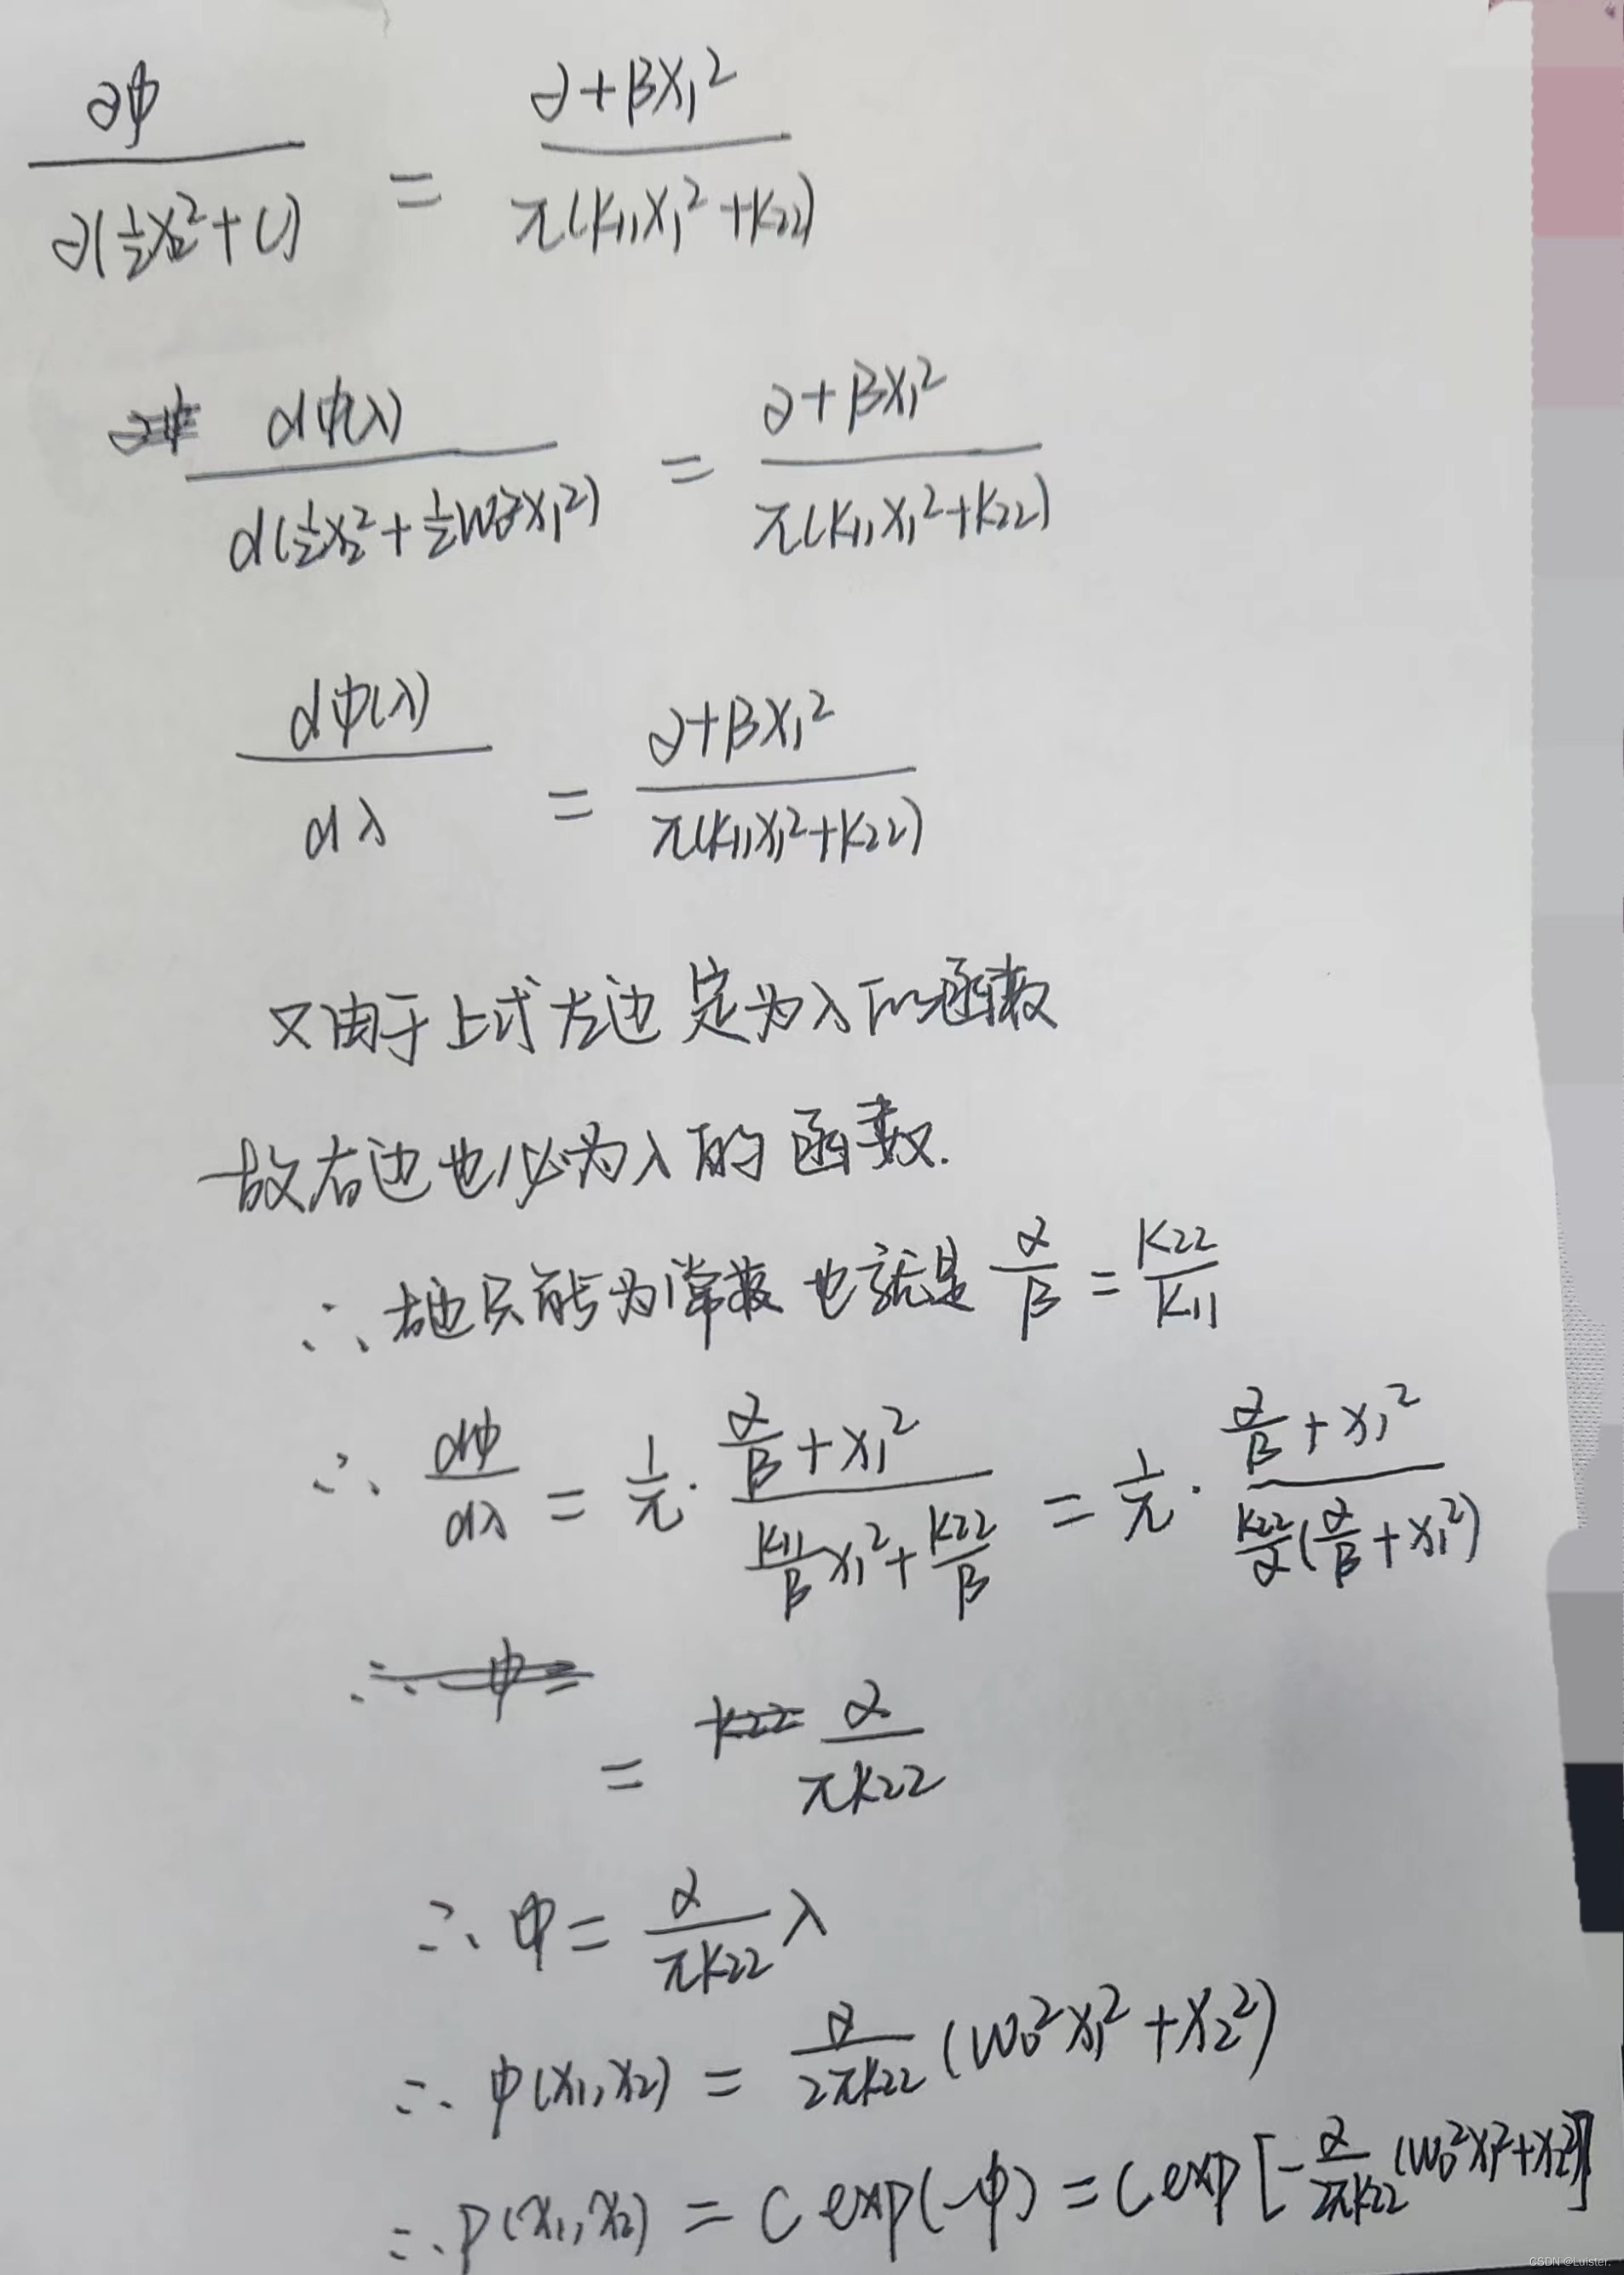 ∂φ / ∂(½x₂²+U) = ∂+βx₁² / π(K₁₁x₁²+K₂₂)
dφ(λ) / d(½x₂²+½ω₀²x₁²) = ∂+βx₁² / π(K₁₁x₁²+K₂₂)
dφ(λ) / dλ = ∂+βx₁² / π(K₁₁x₁²+K₂₂)
又由于上式左边定为λ的函数
故右边也必为λ的函数.
∴右边只能为常数 也就是 α/β = K₂₂/K₁₁
∴ dφ/dλ = 1/π · (α/β + x₁²) / (K₁₁/β x₁² + K₂₂/β) = 1/π · (α/β + x₁²) / (K₂₂/α (α/β + x₁²))
= α / πK₂₂
∴ φ = α/πK₂₂ λ
∴ φ(x₁,x₂) = α/2πK₂₂ (ω₀²x₁²+x₂²)
∴ P(x₁,x₂) = C exp(-φ) = C exp[-α/2πK₂₂ (ω₀²x₁²+x₂²)]
CSDN @Luister.